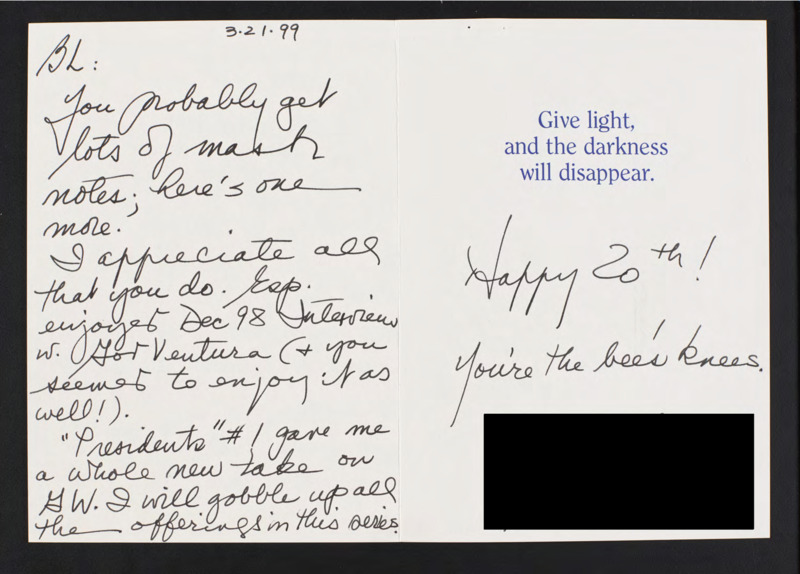 3.21.99
BL:
You probably get
lots of mash
notes; here's one
more.
I appreciate all
that you do. Esp.
enjoyed Dec 98 Interview
w. Gov Ventura (+ you
seemed to enjoy it as
well!).
"Presidents" #1 gave me
a whole new take on
GW. I will gobble up all
the offerings in this series.
Give light,
and the darkness
will disappear.
Happy 20th!
You're the bee's knees.